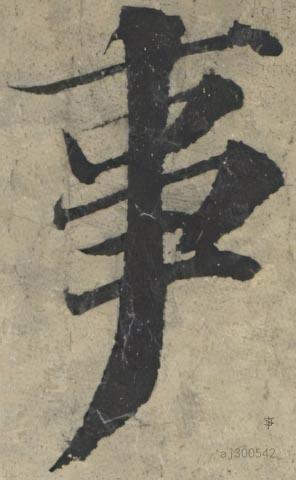 事
aj300542